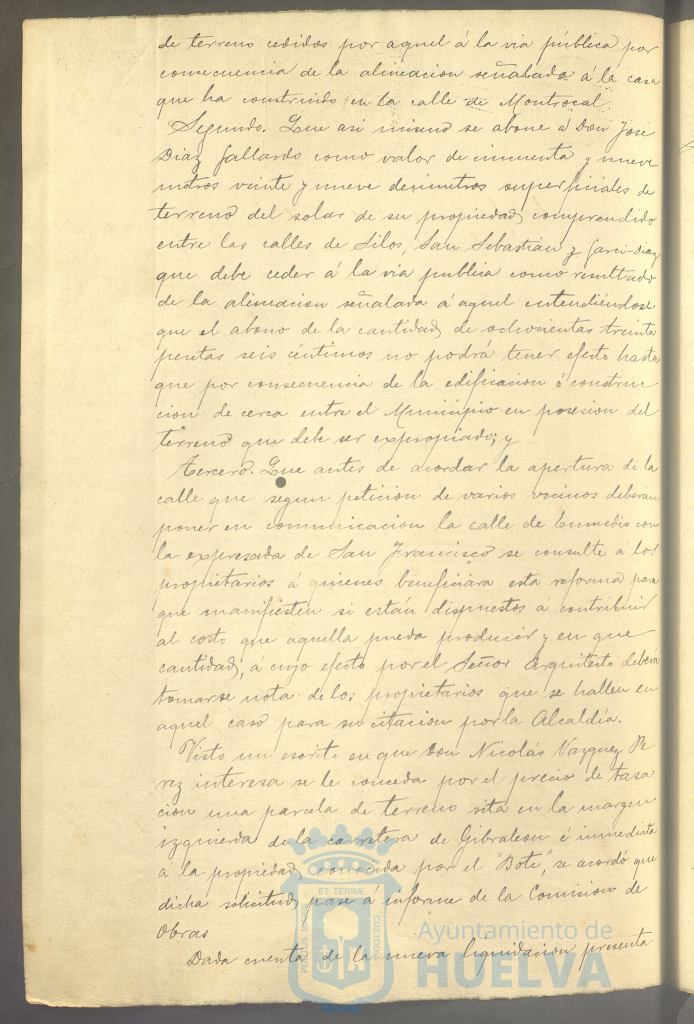 de terreno cedidos por aquel á la via pública por
consecuencia de la alineacion señalada á la casa
que ha construido en la calle de Montrocal.
Segundo. Que asi mismo se abone á Don José
Diaz Gallardo como valor de cincuenta y nueve
metros veinte y nueve decimetros superficiales de
terreno del solar de su propiedad comprendido
entre las calles de Silos, San Sebastian y Garci-Diaz
que debe ceder á la via publica como resultado
de la alineacion señalada á aquel entendiendose
que el abono de la cantidad de ochocientas treinta
pesetas seis céntimos no podrá tener efecto hasta
que por consecuencia de la edificacion ó construc
cion de cerca entre el Municipio en posesion del
terreno que debe ser expropiado; y
Tercero. Que antes de acordar la apertura de la
calle que segun peticion de varios vecinos deberán
poner en comunicacion la calle de con
la expresada de San Francisco se consulte á los
propietarios á quienes beneficiára esta reforma para
que manifiesten si están dispuestos á contribuir
al costo que aquella pueda producir y en que
cantidad, á cuyo efecto por el Señor Arquitecto deberá
tomarse nota de los propietarios que se hallen en
aquel caso para su citacion por la Alcaldía.
Visto un escrito en que Don Nicolás Vazquez Pe
rez interesa se le conceda por el precio de tasa
cion una parcela de terreno sita en la margen
izquierda de la carretera de Gibraleon é inmediata
á la propiedad conocida por el "Bote", se acordó que
dicha solicitud pase á informe de la Comision de
Obras
Dada cuenta de la nueva liquidacion presenta
PORTUS MARIS ET TERRÆ CUSTODIA
Ayuntamiento de
HUELVA